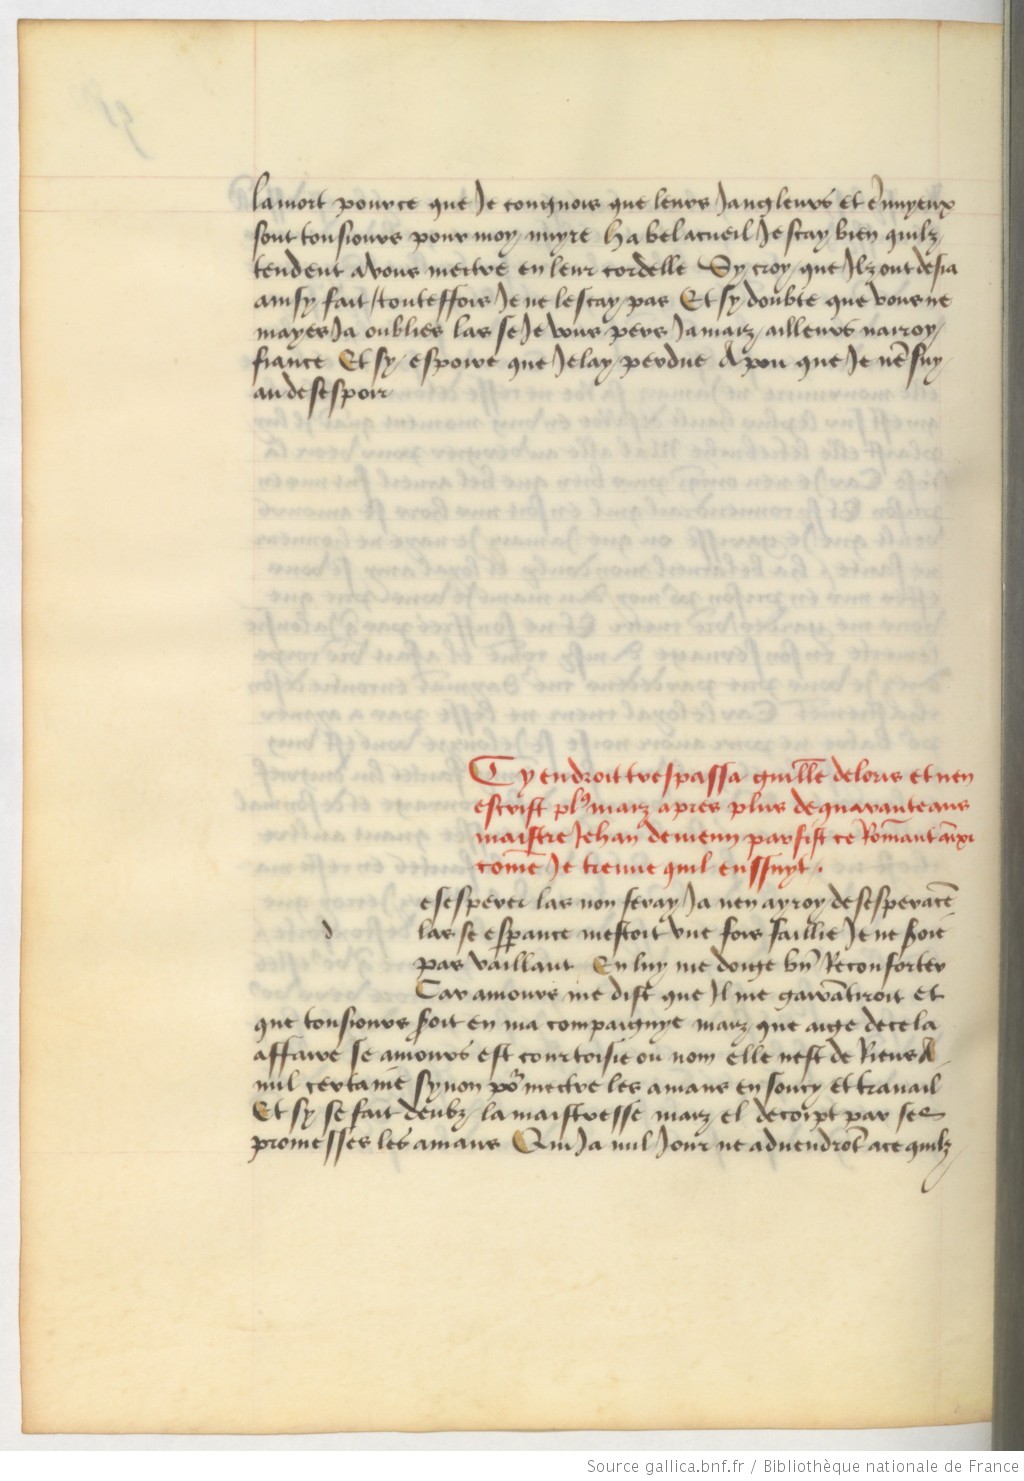 la mort pource que Je congnois que leurs Jangleurs et ẽnuyeux
sont tousiours pour moy nuyre Ha bel acueil Je scay bien quilz
tendent a vous mectre en leur cordelle Sy croy que Jlz ont desia
ainsy fait / touteffois Je ne le scay pas Et sy doubte que vous ne
mayes Ja oublies las se Je vous pers Jamaiz ailleurs nairoy
fiance Et sy espoire que Je lay perdue A pou que Je nẽ suy
au desespoir
Cy endroit trespassa guillẽ deloris et nen
escrist plꝰ maiz apres plus de quarante ans
maistre Jehan de meun parfist ce Rõmant aĩxi
cõme Je treuue quil enssuyt .
d
esesperer las non feray Ja nen ayroy desesperãce
las se esperance mestoit vne fois faillie Je ne soie
pas vaillant En luy me doige bñ Reconforter
Car amours me dist que Jl me garãtiroit et
que tousiours soit en ma compaignye maiz que aige de cela
affaire se amours est courtoisie ou nom elle nest de Riens A
nul certaine synon põ mectre les amans en soucy et trauail
Et sy se fait deulz la maistresse maiz el decoipt par ses
promesses les amans Qui Ja nul Jour ne aduendrõt ace quilz
Source gallica.bnf.fr / Bibliothèque nationale de France